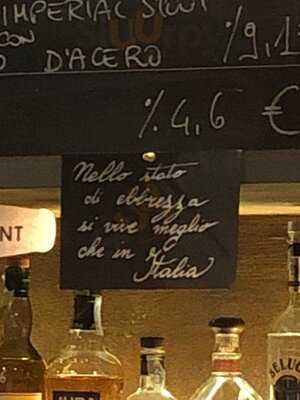 IMPERIAL STOUT
CON
D'ACERO %9,1
% 4,6 €
Nello stato
di ebbrezza
si vive meglio
che in
Italia
NT
JURA
SELUC